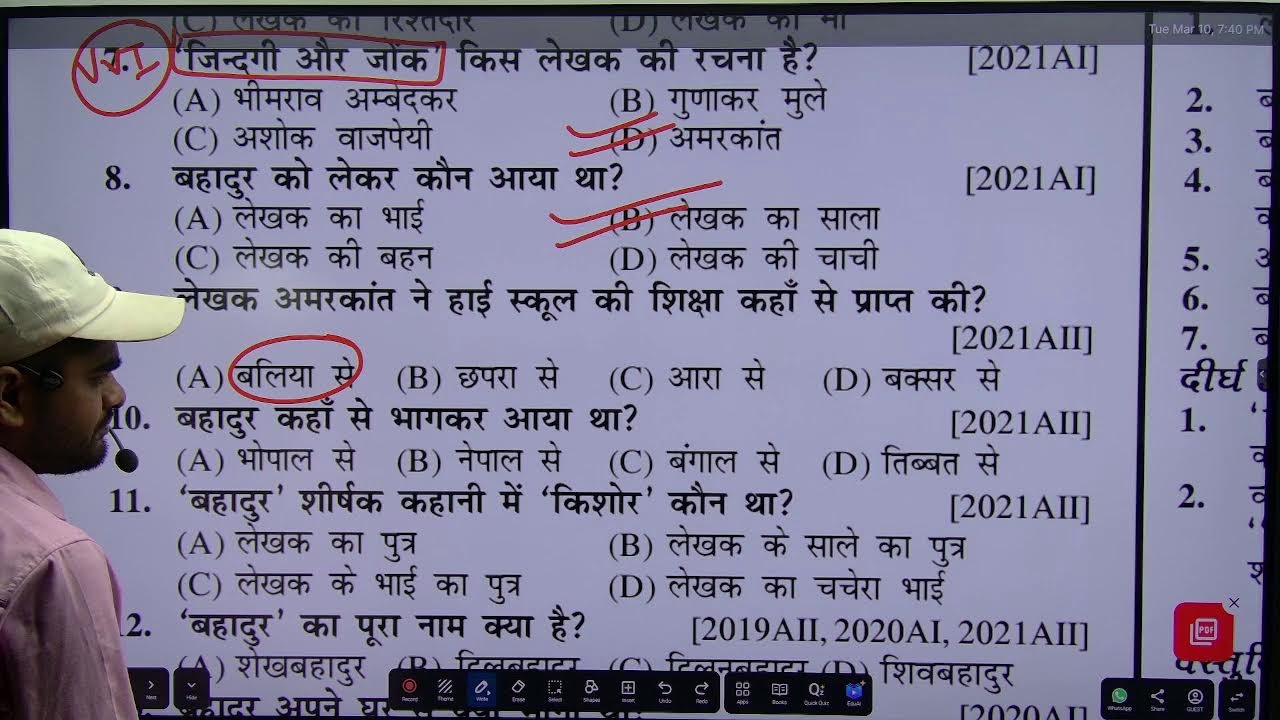 (C) लेखक का रिश्तेदार (D) लेखक की माँ
Tue Mar 10, 7:40 PM
V.V.I 7. 'जिन्दगी और जोंक' किस लेखक की रचना है? [2021AI]
(A) भीमराव अम्बेदकर (B) गुणाकर मुले
(C) अशोक वाजपेयी (D) अमरकांत
8. बहादुर को लेकर कौन आया था? [2021AI]
(A) लेखक का भाई (B) लेखक का साला
(C) लेखक की बहन (D) लेखक की चाची
लेखक अमरकांत ने हाई स्कूल की शिक्षा कहाँ से प्राप्त की?
[2021AII]
(A) बलिया से (B) छपरा से (C) आरा से (D) बक्सर से
10. बहादुर कहाँ से भागकर आया था? [2021AII]
(A) भोपाल से (B) नेपाल से (C) बंगाल से (D) तिब्बत से
11. 'बहादुर' शीर्षक कहानी में 'किशोर' कौन था? [2021AII]
(A) लेखक का पुत्र (B) लेखक के साले का पुत्र
(C) लेखक के भाई का पुत्र (D) लेखक का चचेरा भाई
12. 'बहादुर' का पूरा नाम क्या है? [2019AII, 2020AI, 2021AII]
(A) शेखबहादुर (B) दिलबहादुर (C) दिलनबहादुर (D) शिवबहादुर
बहादुर अपने घर से [2020AI]
2.
3.
4.
5.
6.
7.
दीर्घ
1.
2.
PDF
Next Hide Record Themes Write Eraser Select Shapes Insert Undo Redo Apps Books Quick Quiz EduAI
WhatsApp Share GUEST Switch